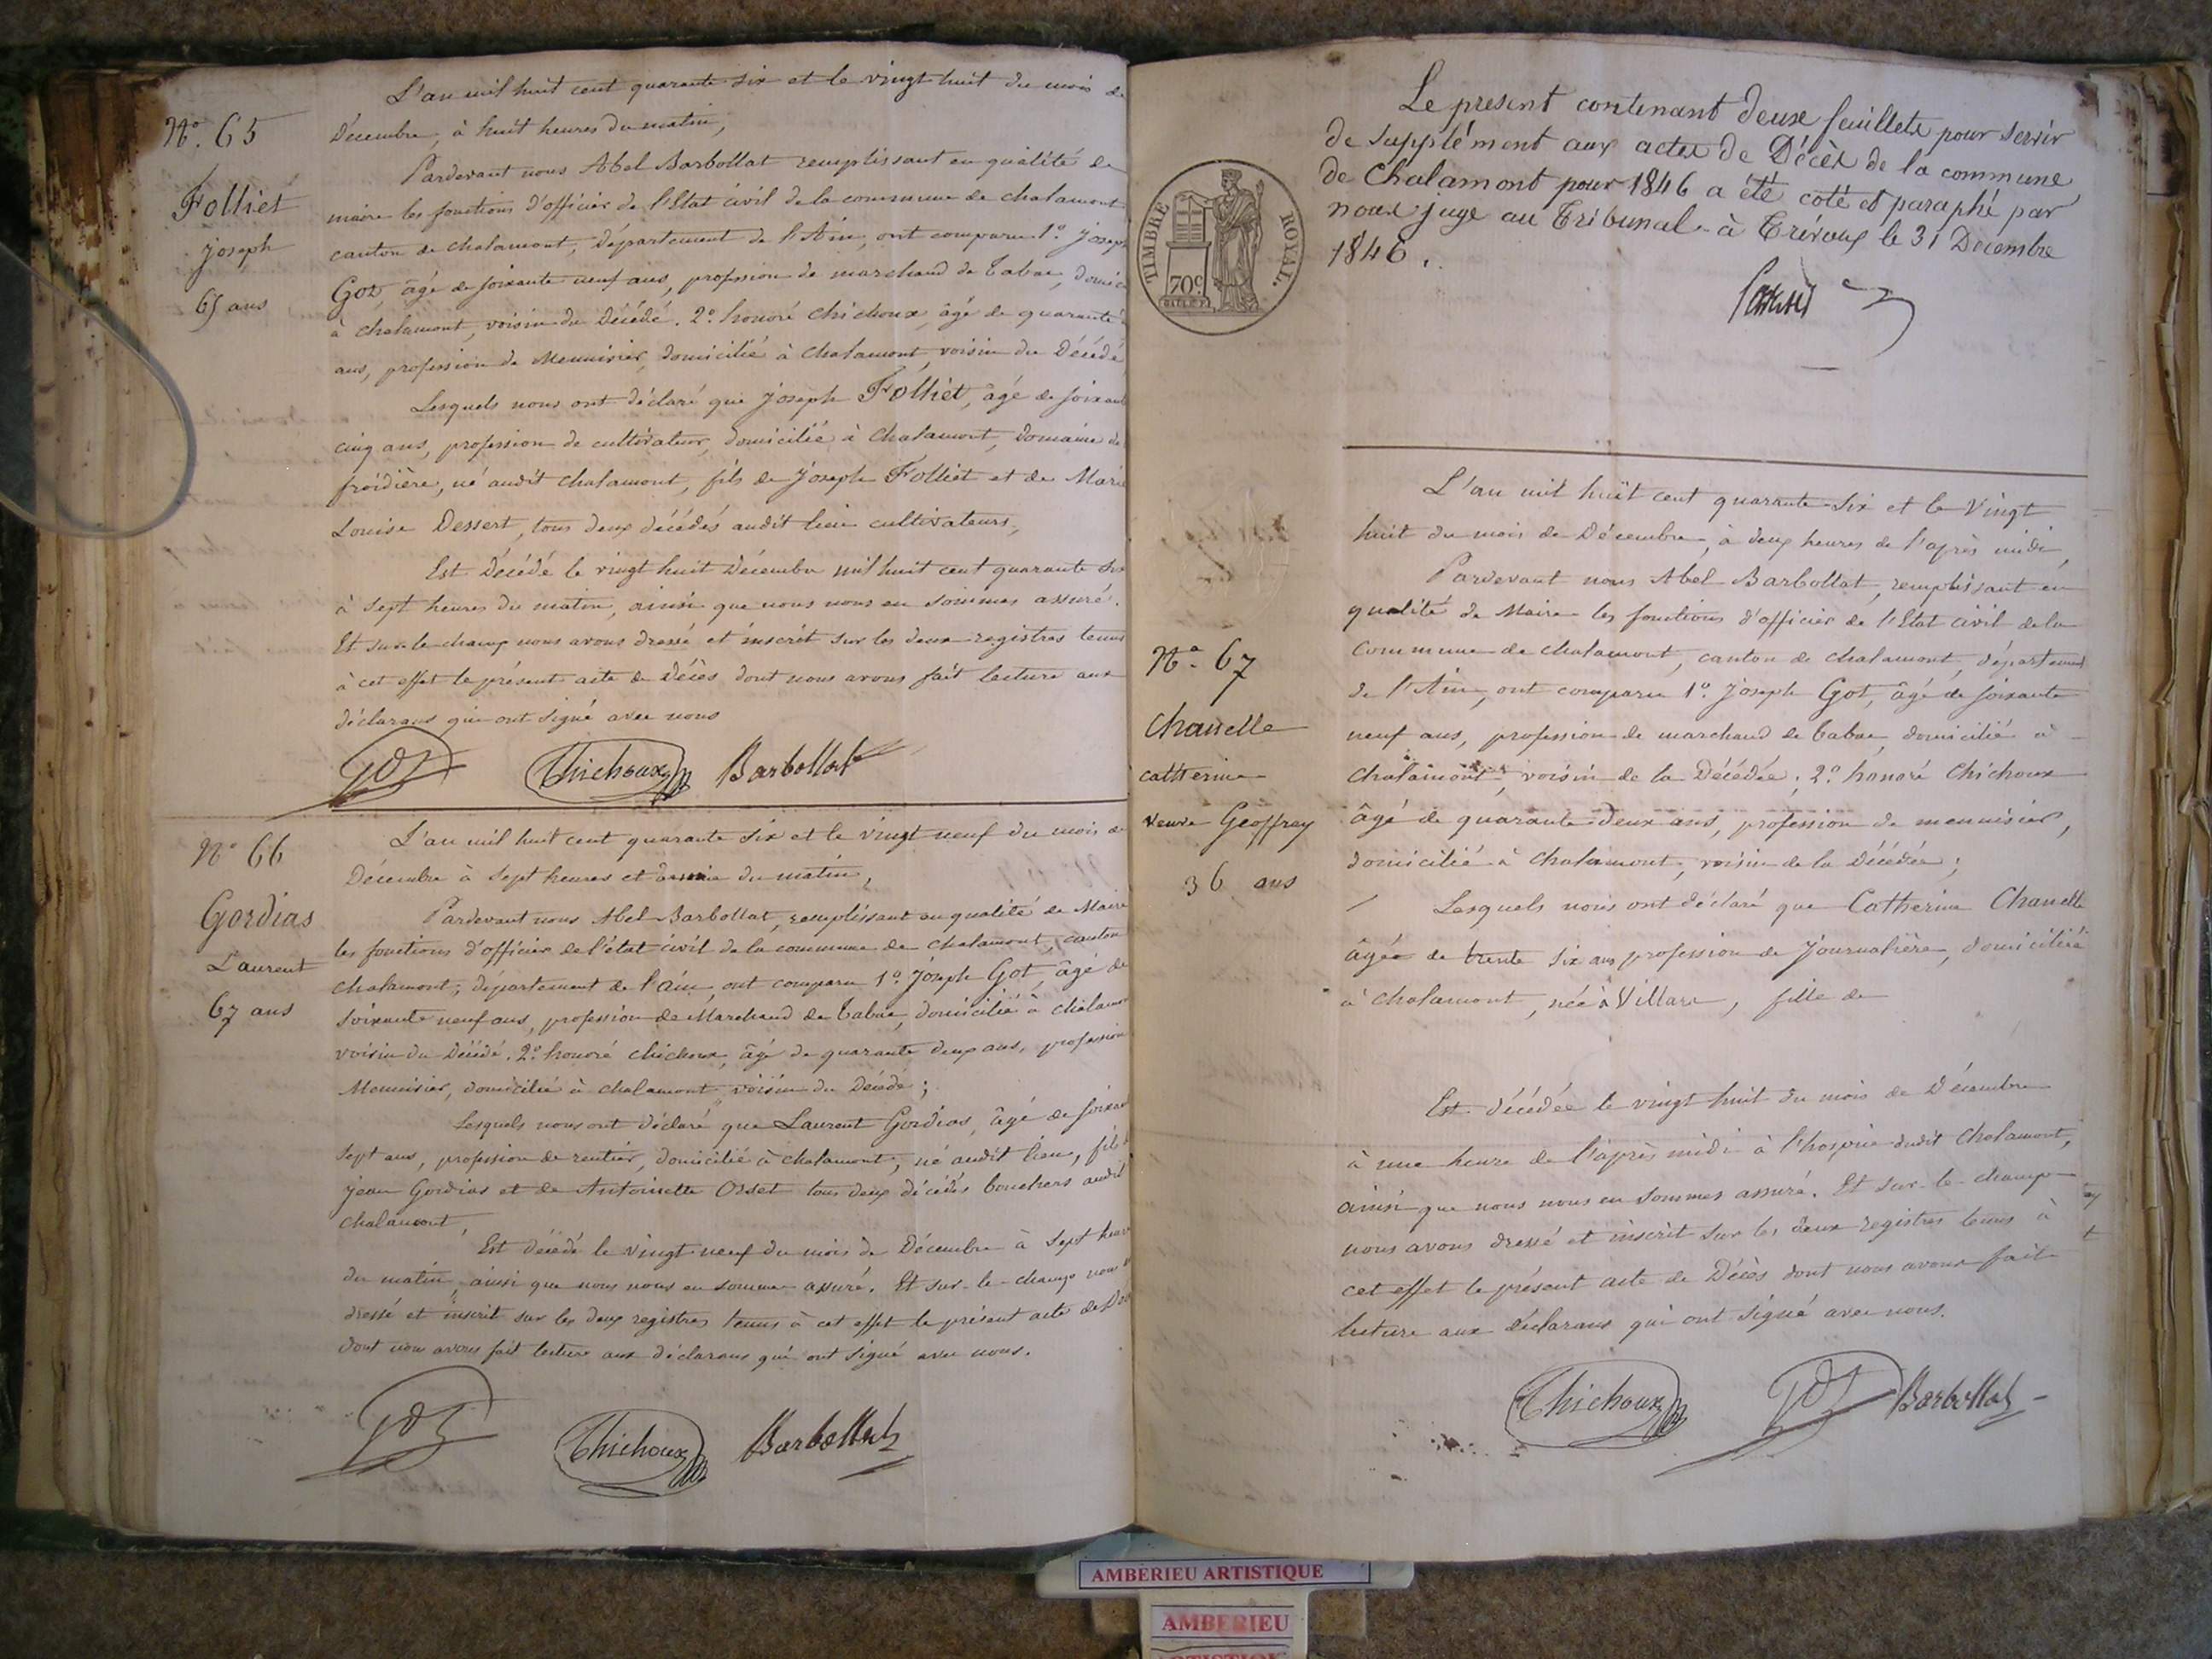 L'an mil huit cent quarante six et le vingt huit du mois de
N°. 65
Décembre, à huit heures du matin,
Pardevant nous Abel Barbollat remplissant en qualité de
Folliet
maire les fonctions d'officier de l'Etat civil de la commune de chalamont
Joseph
canton de chalamont, département de l'Ain, ont comparu 1°. Joseph
65 ans
Got, âgé de soixante neuf ans, profession de marchand de tabac, domici
à chalamont, voisin du décédé. 2°. honoré Chichoux, âgé de quarante
ans, profession de Menuisier, domicilié à Chalamont, voisin du Décédé
Lesquels nous ont déclaré que Joseph Folliet, âgé de soixante
cinq ans, profession de cultivateur, domicilié à Chalamont, domaine de
froidière, né audit chalamont, fils de Joseph Folliet et de Marie
Louise Dessert, tous deux décédés audit lieu cultivateurs,
Est Décédé le vingt huit Décembre mil huit cent quarante six
à sept heures du matin, ainsi que nous nous en sommes assuré.
Et sur le champ nous avons dressé et inscrit sur les deux registres tenus
à cet effet le présent acte de décès dont nous avons fait lecture aux
déclarans qui ont signé avec nous
Got Chichoux Barbollat
N° 66
L'an mil huit cent quarante six et le vingt neuf du mois de
Décembre à sept heures et demie du matin,
Gordias
Pardevant nous Abel Barbollat, remplissant en qualité de Maire
les fonctions d'officier de l'état civil de la commune de Chalamont, canton
Laurent
chalamont, département de l'ain, ont comparu 1°. Joseph Got, âgé de
67 ans
soixante neuf ans, profession de Marchand de tabac, domicilié à chalamont
voisin du Décédé. 2°. honoré chichoux, âgé de quarante deux ans, profession
Menuisier, domicilié à chalamont, voisin du Décédé;
Lesquels nous ont déclaré que Laurent Gordias, âgé de soixante
sept ans, profession de rentier, domicilié à chalamont, né audit lieu, fils
jean Gordias et de Antoinette Osset tous deux décédés bouchers audit
chalamont,
Est décédé le vingt neuf du mois de Décembre à sept heures
du matin, ainsi que nous nous en sommes assuré. Et sur-le-champ nous
dressé et inscrit sur les deux registres tenus à cet effet le présent acte de
dont nous avons fait lecture aux déclarans qui ont signé avec nous.
Got Chichoux Barbollat
Le present contenant deux feuillets pour servir
de supplément aux actes de Décès de la commune
de Chalamont pour 1846 a été coté et paraphé par
nous juge au Tribunal à Trévoux le 31 Decembre
1846.
TIMBRE ROYAL.
70c
L'an mil huit cent quarante-six et le vingt
huit du mois de Décembre, à deux heures de l'après midi,
Pardevant nous Abel Barbollat, remplissant en
qualité de Maire les fonctions d'officier de l'Etat civil de la
N°. 67
commune de chalamont, canton de chalamont, département
de l'Ain, ont comparu 1°. Joseph Got, âgé de soixante
Chanelle
neuf ans, profession de marchand de tabac, domicilié à
catherine
chalamont, voisin de la Décédée; 2°. honoré Chichoux
veuve Geoffray
âgé de quarante-deux ans, profession de menuisier,
domicilié à Chalamont, voisin de la Décédée;
36 ans
Lesquels nous ont déclaré que Catherine Chanelle
âgée de trente six ans profession de Journalière, domiciliée
à chalamont, née à Villars, fille de
Est décédée le vingt huit du mois de Décembre
à une heure de l'après midi à l'hospice dudit Chalamont,
ainsi que nous nous en sommes assuré. Et sur-le-champ
nous avons dressé et inscrit sur les deux registres tenus à
cet effet le présent acte de Décès dont nous avons fait
lecture aux déclarans qui ont signé avec nous.
Chichoux Got Barbollat
AMBERIEU ARTISTIQUE
AMBERIEU
ARTISTIQUE